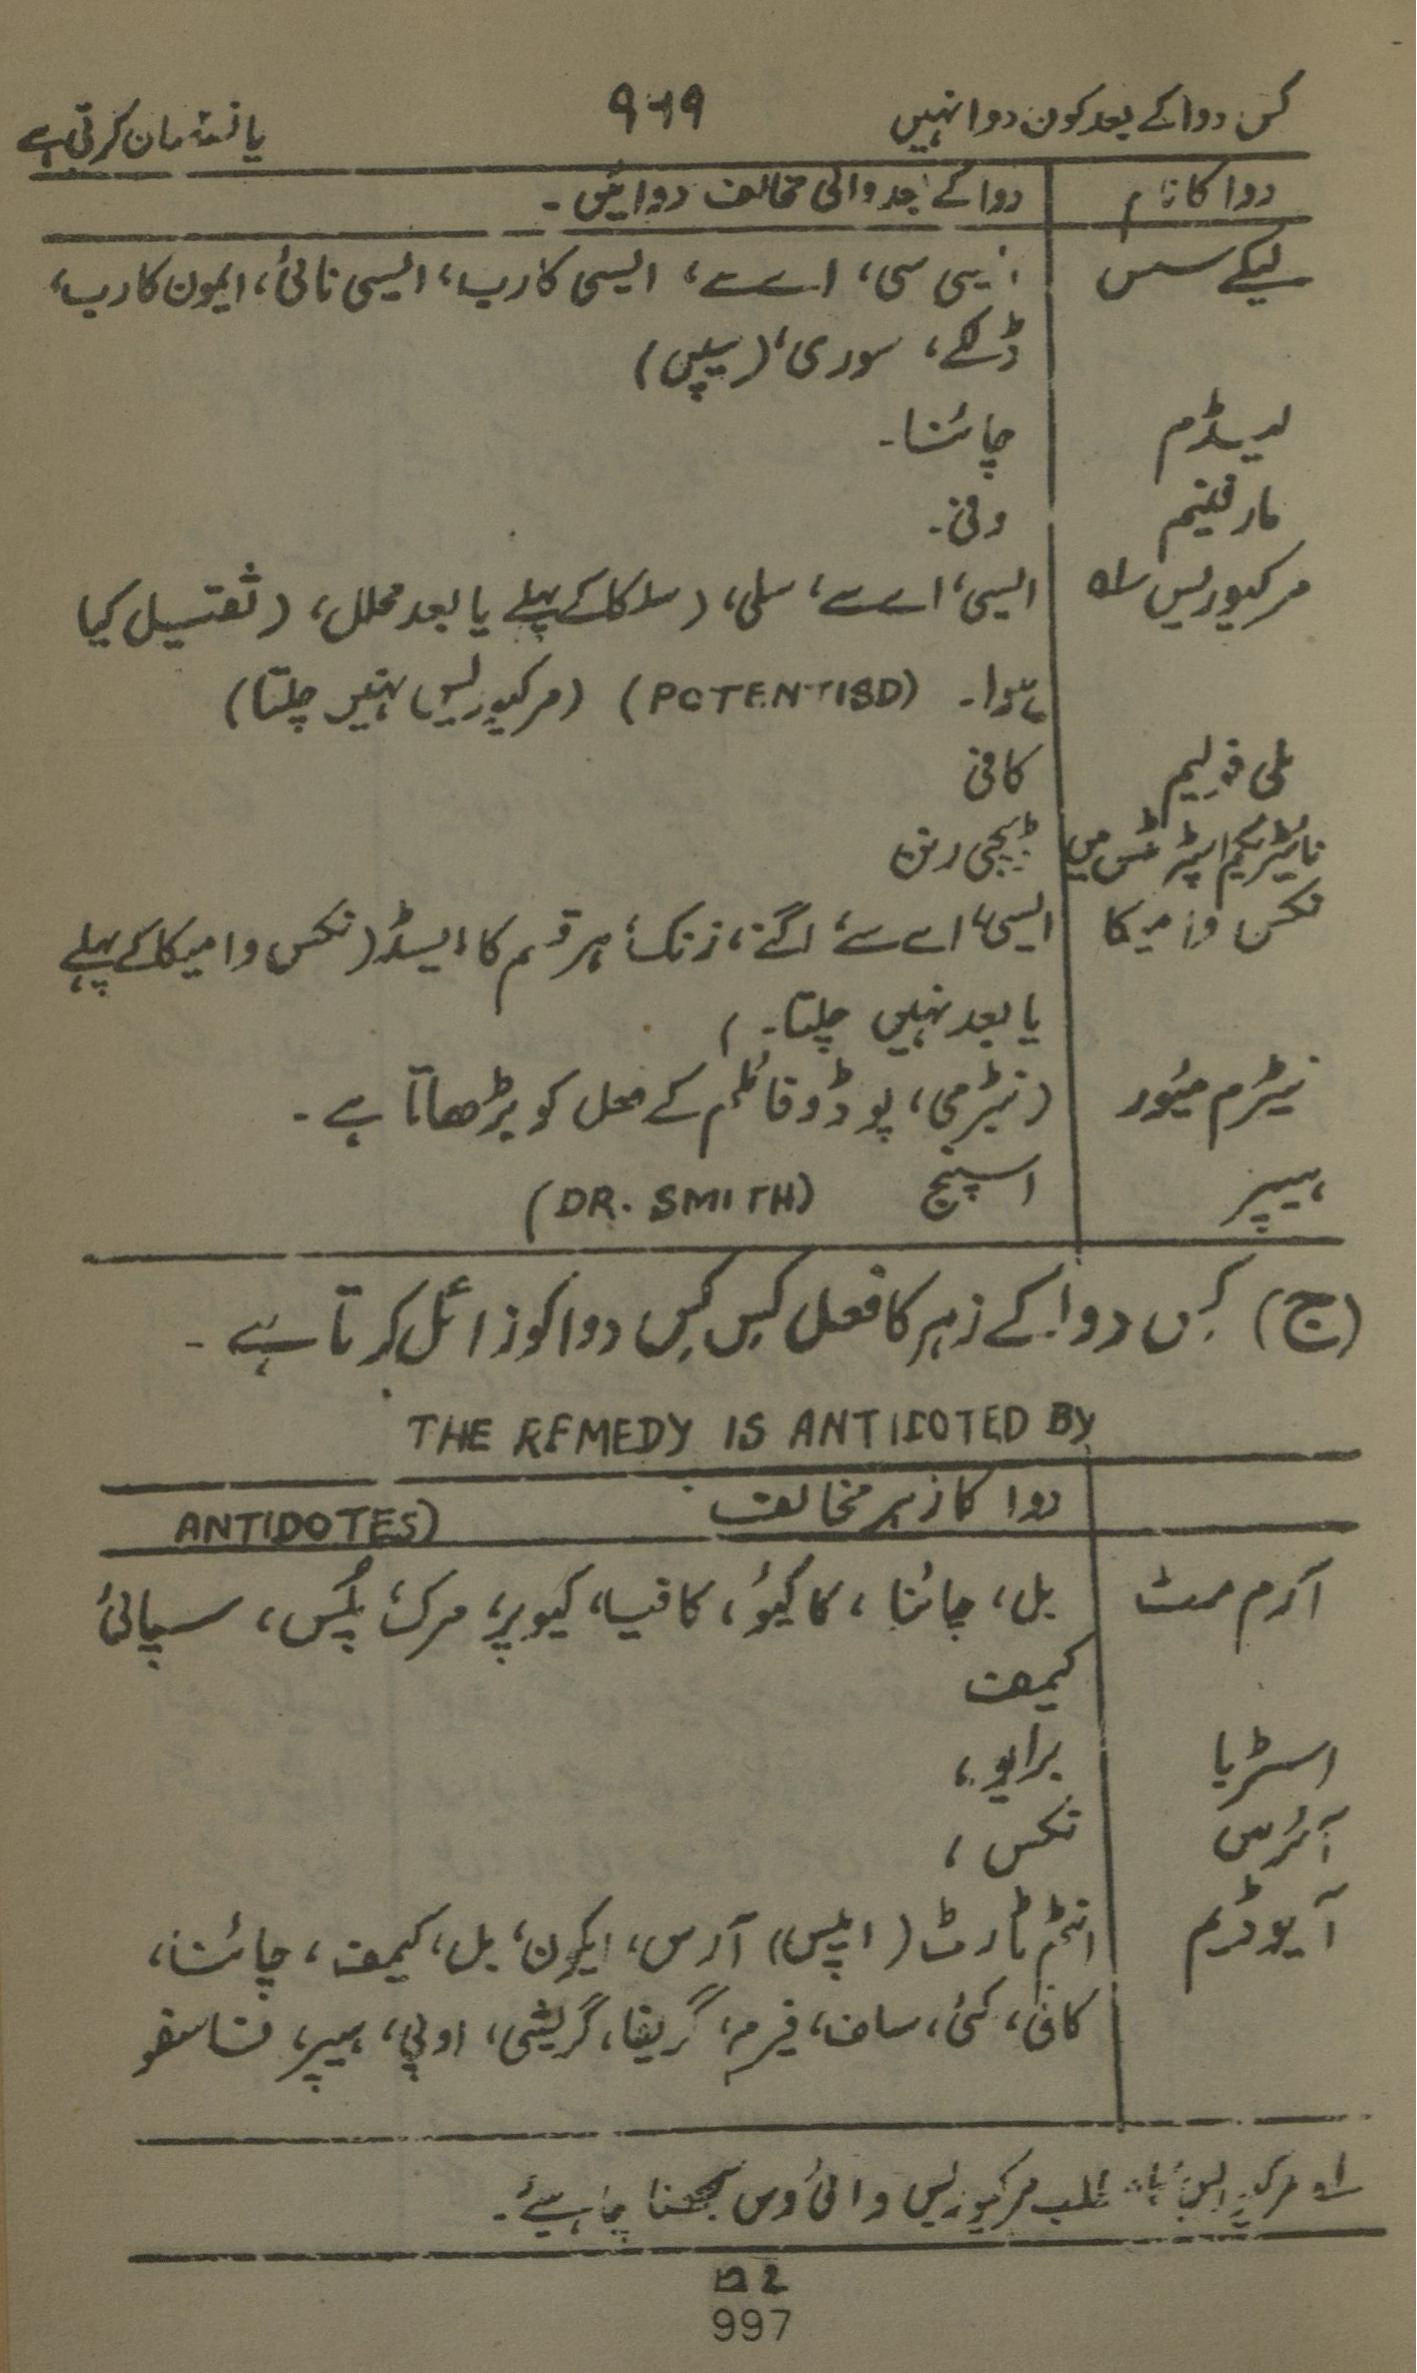 کس دوا کے بعد کون دوا نہیں ۹۶۹ یا نقصان کرتی ہے
دوا کا نام دوا کے بعد والی مخالف دوائیں ۔
لیکے سس ایسی سی، اے سے، ایسی کارب، ایسی نائی، ایمون کارب،
ڈلکے، سوری، (سیپی)
لیڈم چائنا ۔
مارفینم ونی ۔
مرکیوریس لہ ایسی، اے سے، سلی، (سلکا کے پہلے یا بعد محلل، (ثقتیل کیا
ہوا ۔ (POTENTISD) (مرکیوریس نہیں چلتا)
ملی فولیم کافی
نائیٹریکم اسپرٹس میں ڈیجی
نکس وامیکا ایسی، اے سے، اگنے، زنک، ہر قسم کا ایسڈ (نکس وامیکا کے پہلے
یا بعد نہیں چلتا ۔ )
نیٹرم میور (نیٹرمی، پوڈوفائلم کے عمل کو بڑھاتا ہے ۔
ہیپر اسپنج (DR. SMITH)
(ج) کس دوا کے زہر کا فعل کس کس دوا کو زائل کرتا ہے ۔
THE REMEDY IS ANTIDOTED BY
دوا کا زہر مخالف ANTIDOTES)
آرم مٹ بل، چائنا، کاکیو، کافیا، کیوپر، مرک، پلس، سپائی
کیمف
اسٹریا برایو،
آئرس نکس،
آیوڈیم انٹم ٹارٹ (اپیس) آرس، ایکون، بل، کیمف، چائنا،
کافی، کئی، ساف، فیرم، گریفا، گریشی، اوپی، ہیپر، فاسفو
لہ مرکیوریس مطلب مرکیوریس وائی وس سمجھنا چاہیئے ۔
997